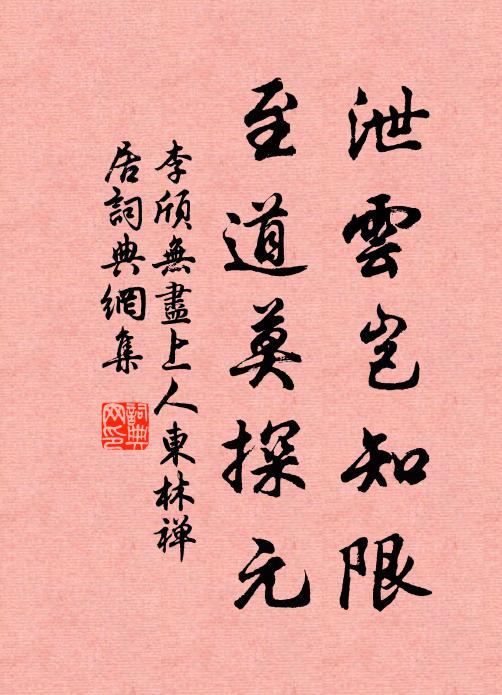 泄雲岂知限
至道莫探元
李頎無盡上人東林禅
居詞典網集
詞典网印